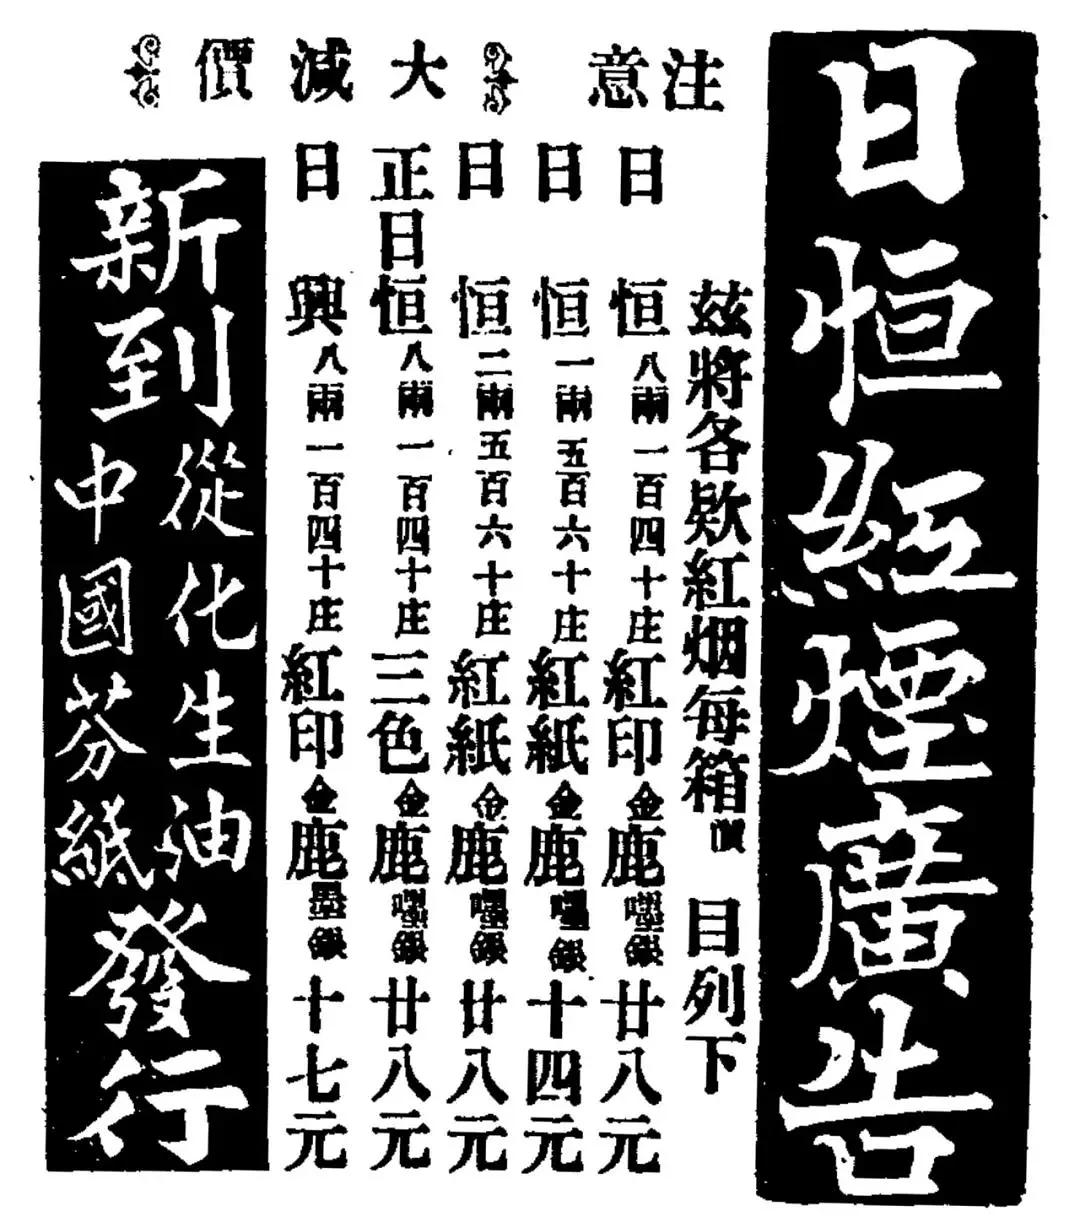 日恒紅煙廣告
注意
大減價
茲將各欵紅烟每箱價目列下
日恒八兩一百四十庄紅印金鹿嚜銀廿八元
日恒一兩五百六十庄紅紙金鹿嚜銀十四元
日恒二兩五百六十庄紅紙金鹿嚜銀廿八元
正日恒八兩一百四十庄三色金鹿嚜銀廿八元
日興八兩一百四十庄紅印金鹿墨銀十七元
新到
從化生油
中國芬紙
發行